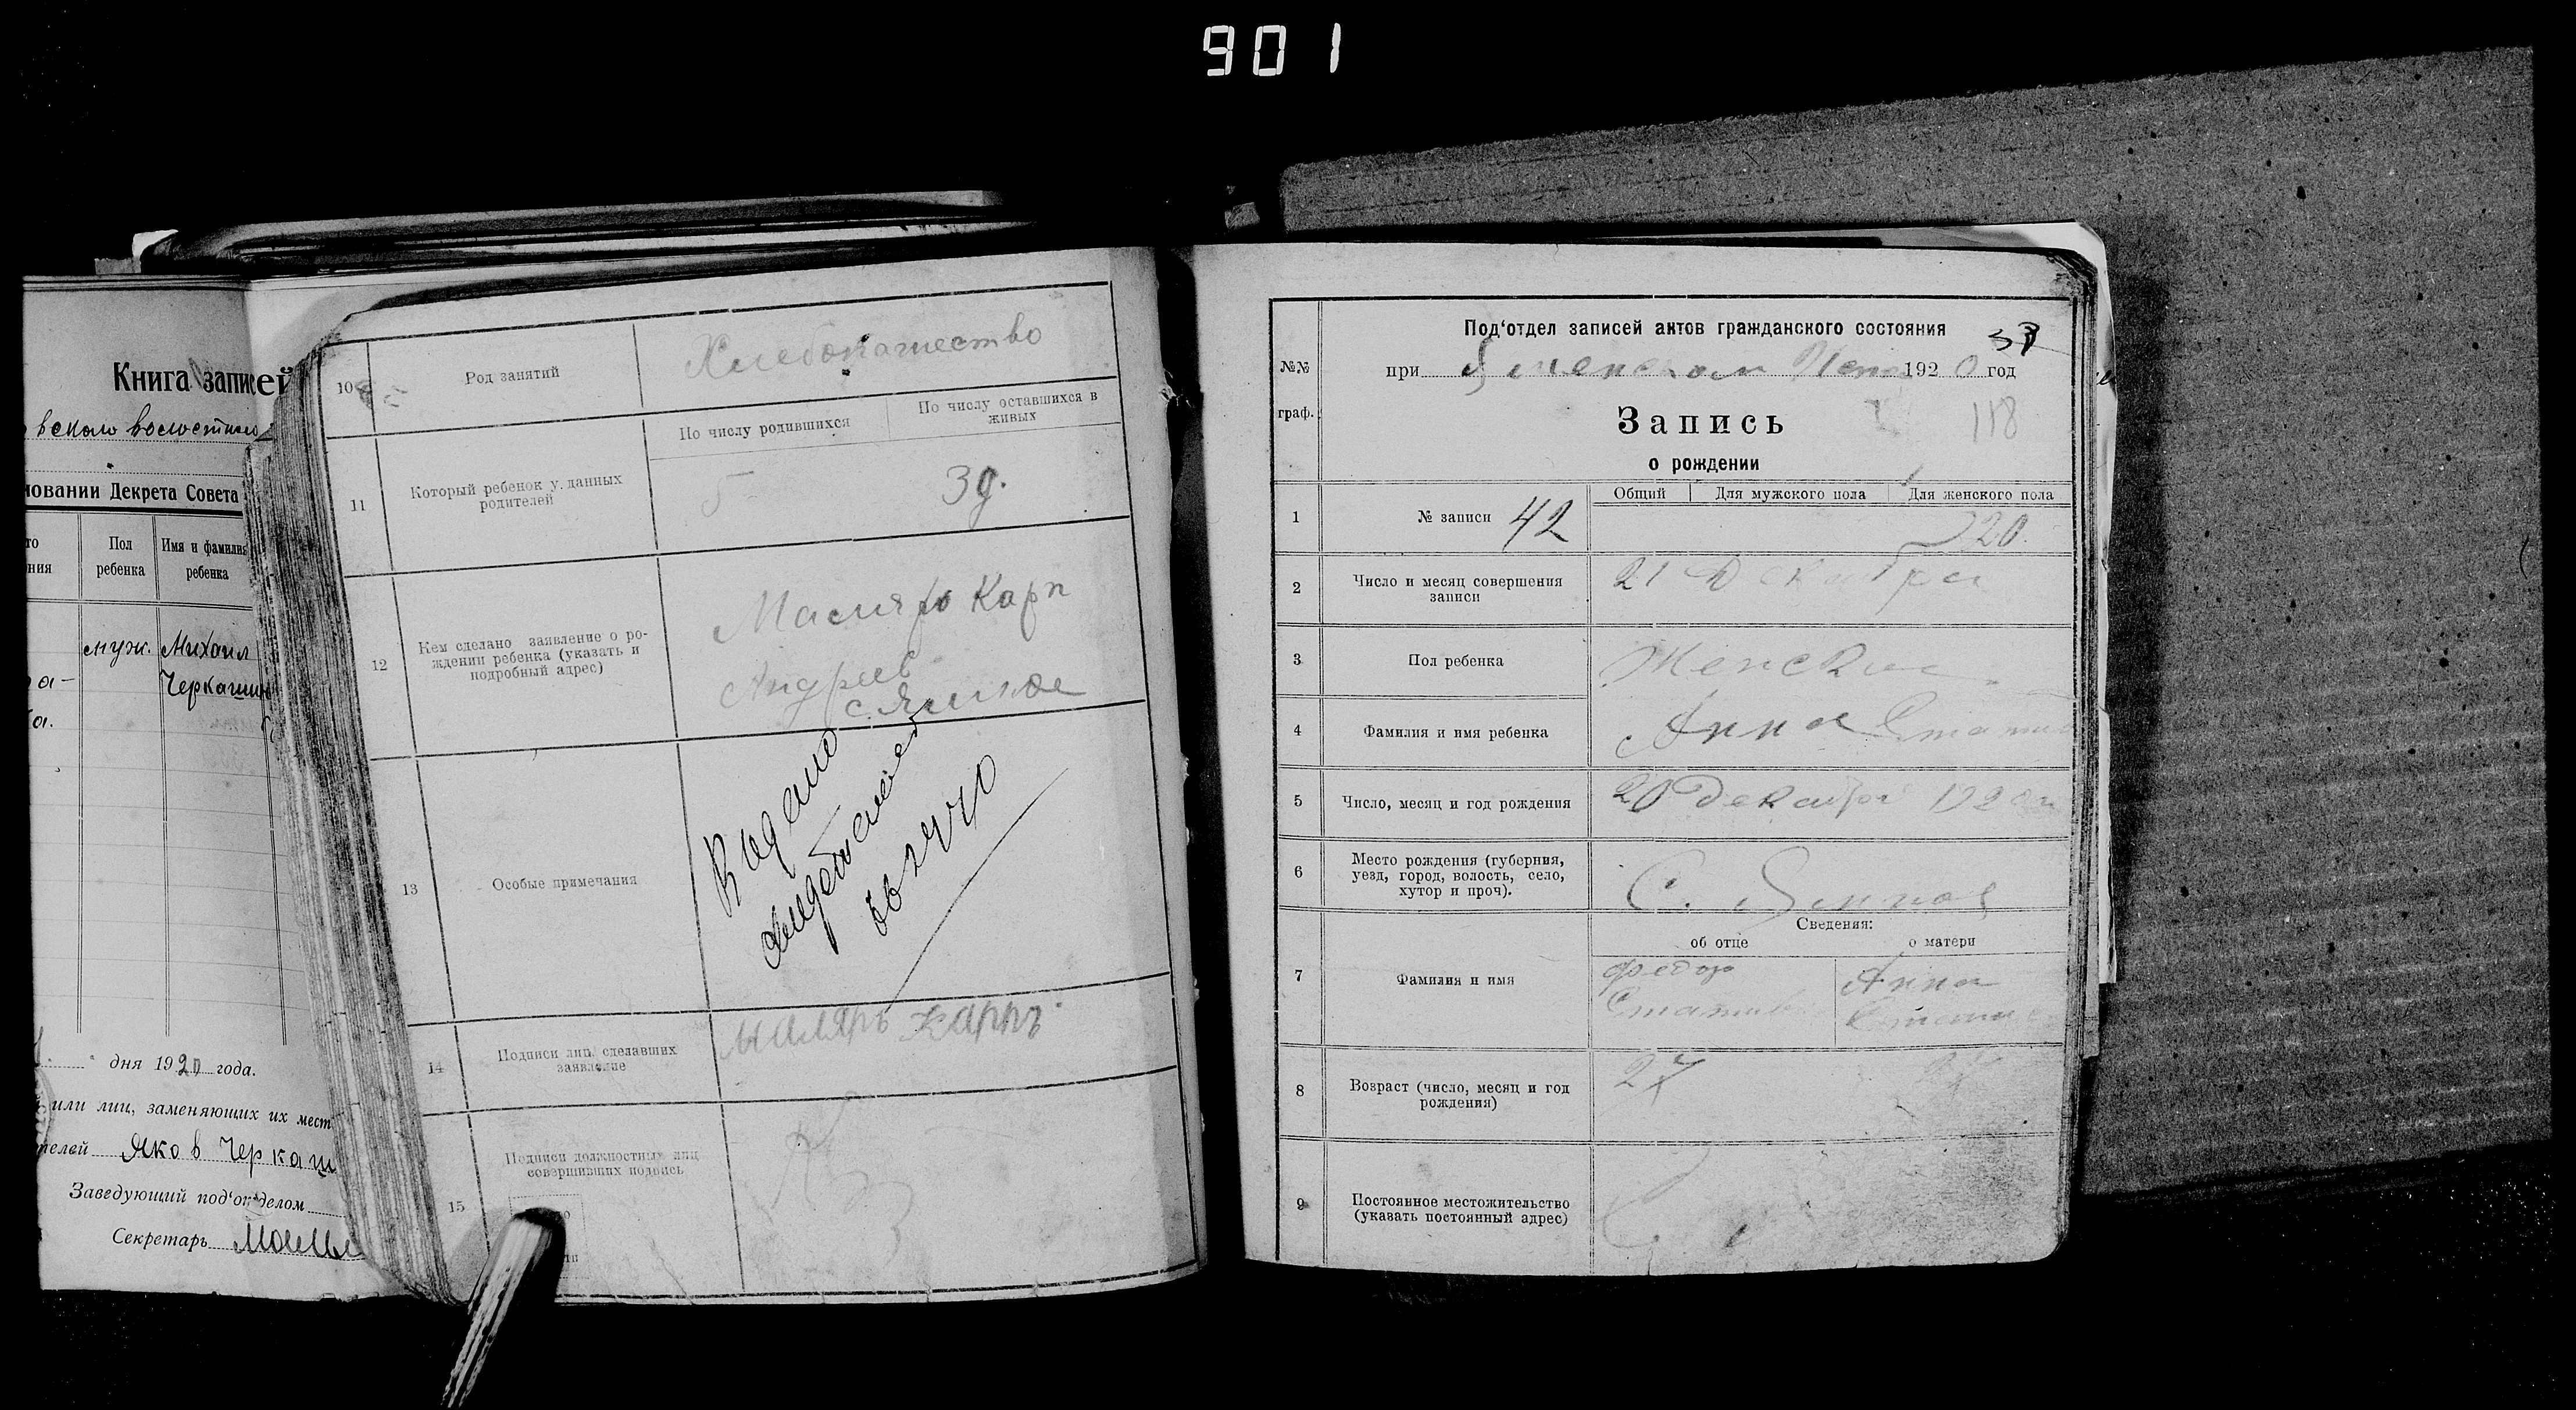 901
Книга записей
вском волостном
новании Декрета Совета
Пол ребенка
Имя и фамилия ребенка
муж.
Михаил
Черкашин
дня 1920 года.
или лиц, заменяющих их мест
телей Яков Черкаш
Заведующий под‘отделом
Секретарь
10
Род занятий
Хлебопашество
11
Который ребенок у данных родителей
По числу родившихся
По числу оставшихся в живых
5
3
12
Кем сделано заявление о ро-
ждении ребенка (указать и
подробный адрес)
Маляр Карп
Андреев
с. Ямное
13
Особые примечания
14
Подписи лиц, сделавших
заявление
Маляръ Карпъ
15
Подписи должностных лиц
совершивших подпись
№№
граф.
Под‘отдел записей актов гражданского состояния
37
при Яменском 1920 год
Запись
118
о рождении
1
№ записи 42
Общий
Для мужского пола
Для женского пола
20
2
Число и месяц совершения
записи
21 Декабря
3
Пол ребенка
Женский
4
Фамилия и имя ребенка
Анна
5
Число, месяц и год рождения
20 Декабря 1920
6
Место рождения (губерния,
уезд, город, волость, село,
хутор и проч).
С. Ямное
Сведения:
об отце
о матери
7
Фамилия и имя
Федор
Анна
8
Возраст (число, месяц и год
рождения)
27
9
Постоянное местожительство
(указать постоянный адрес)